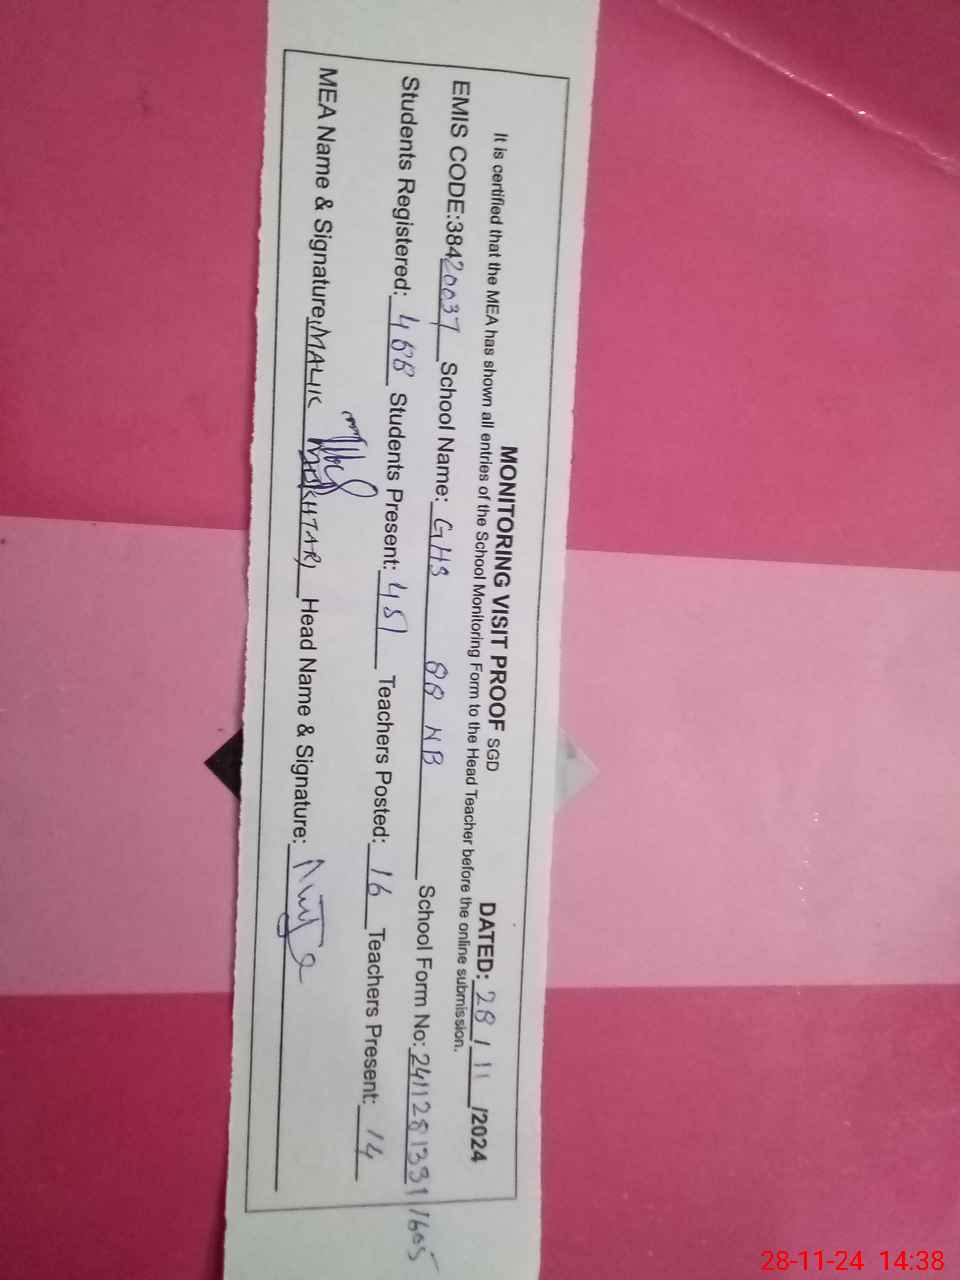 MONITORING VISIT PROOF SGD DATED: 28/11/2024
It is certified that the MEA has shown all entries of the School Monitoring Form to the Head Teacher before the online submission.
EMIS CODE:38420037 School Name: GHS 88 NB School Form No: 241128133111605
Students Registered: 488 Students Present: 451 Teachers Posted: 16 Teachers Present: 14
MEA Name & Signature: MALIK MUKHTAR Head Name & Signature:
28-11-24 14:38